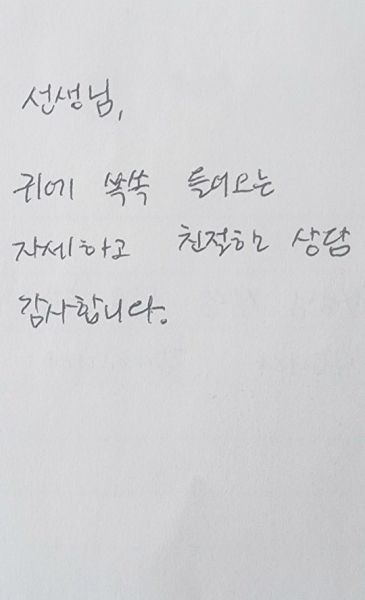 선생님,
귀에 쏙쏙 들어오는
자세하고 친절한 상담
감사합니다.